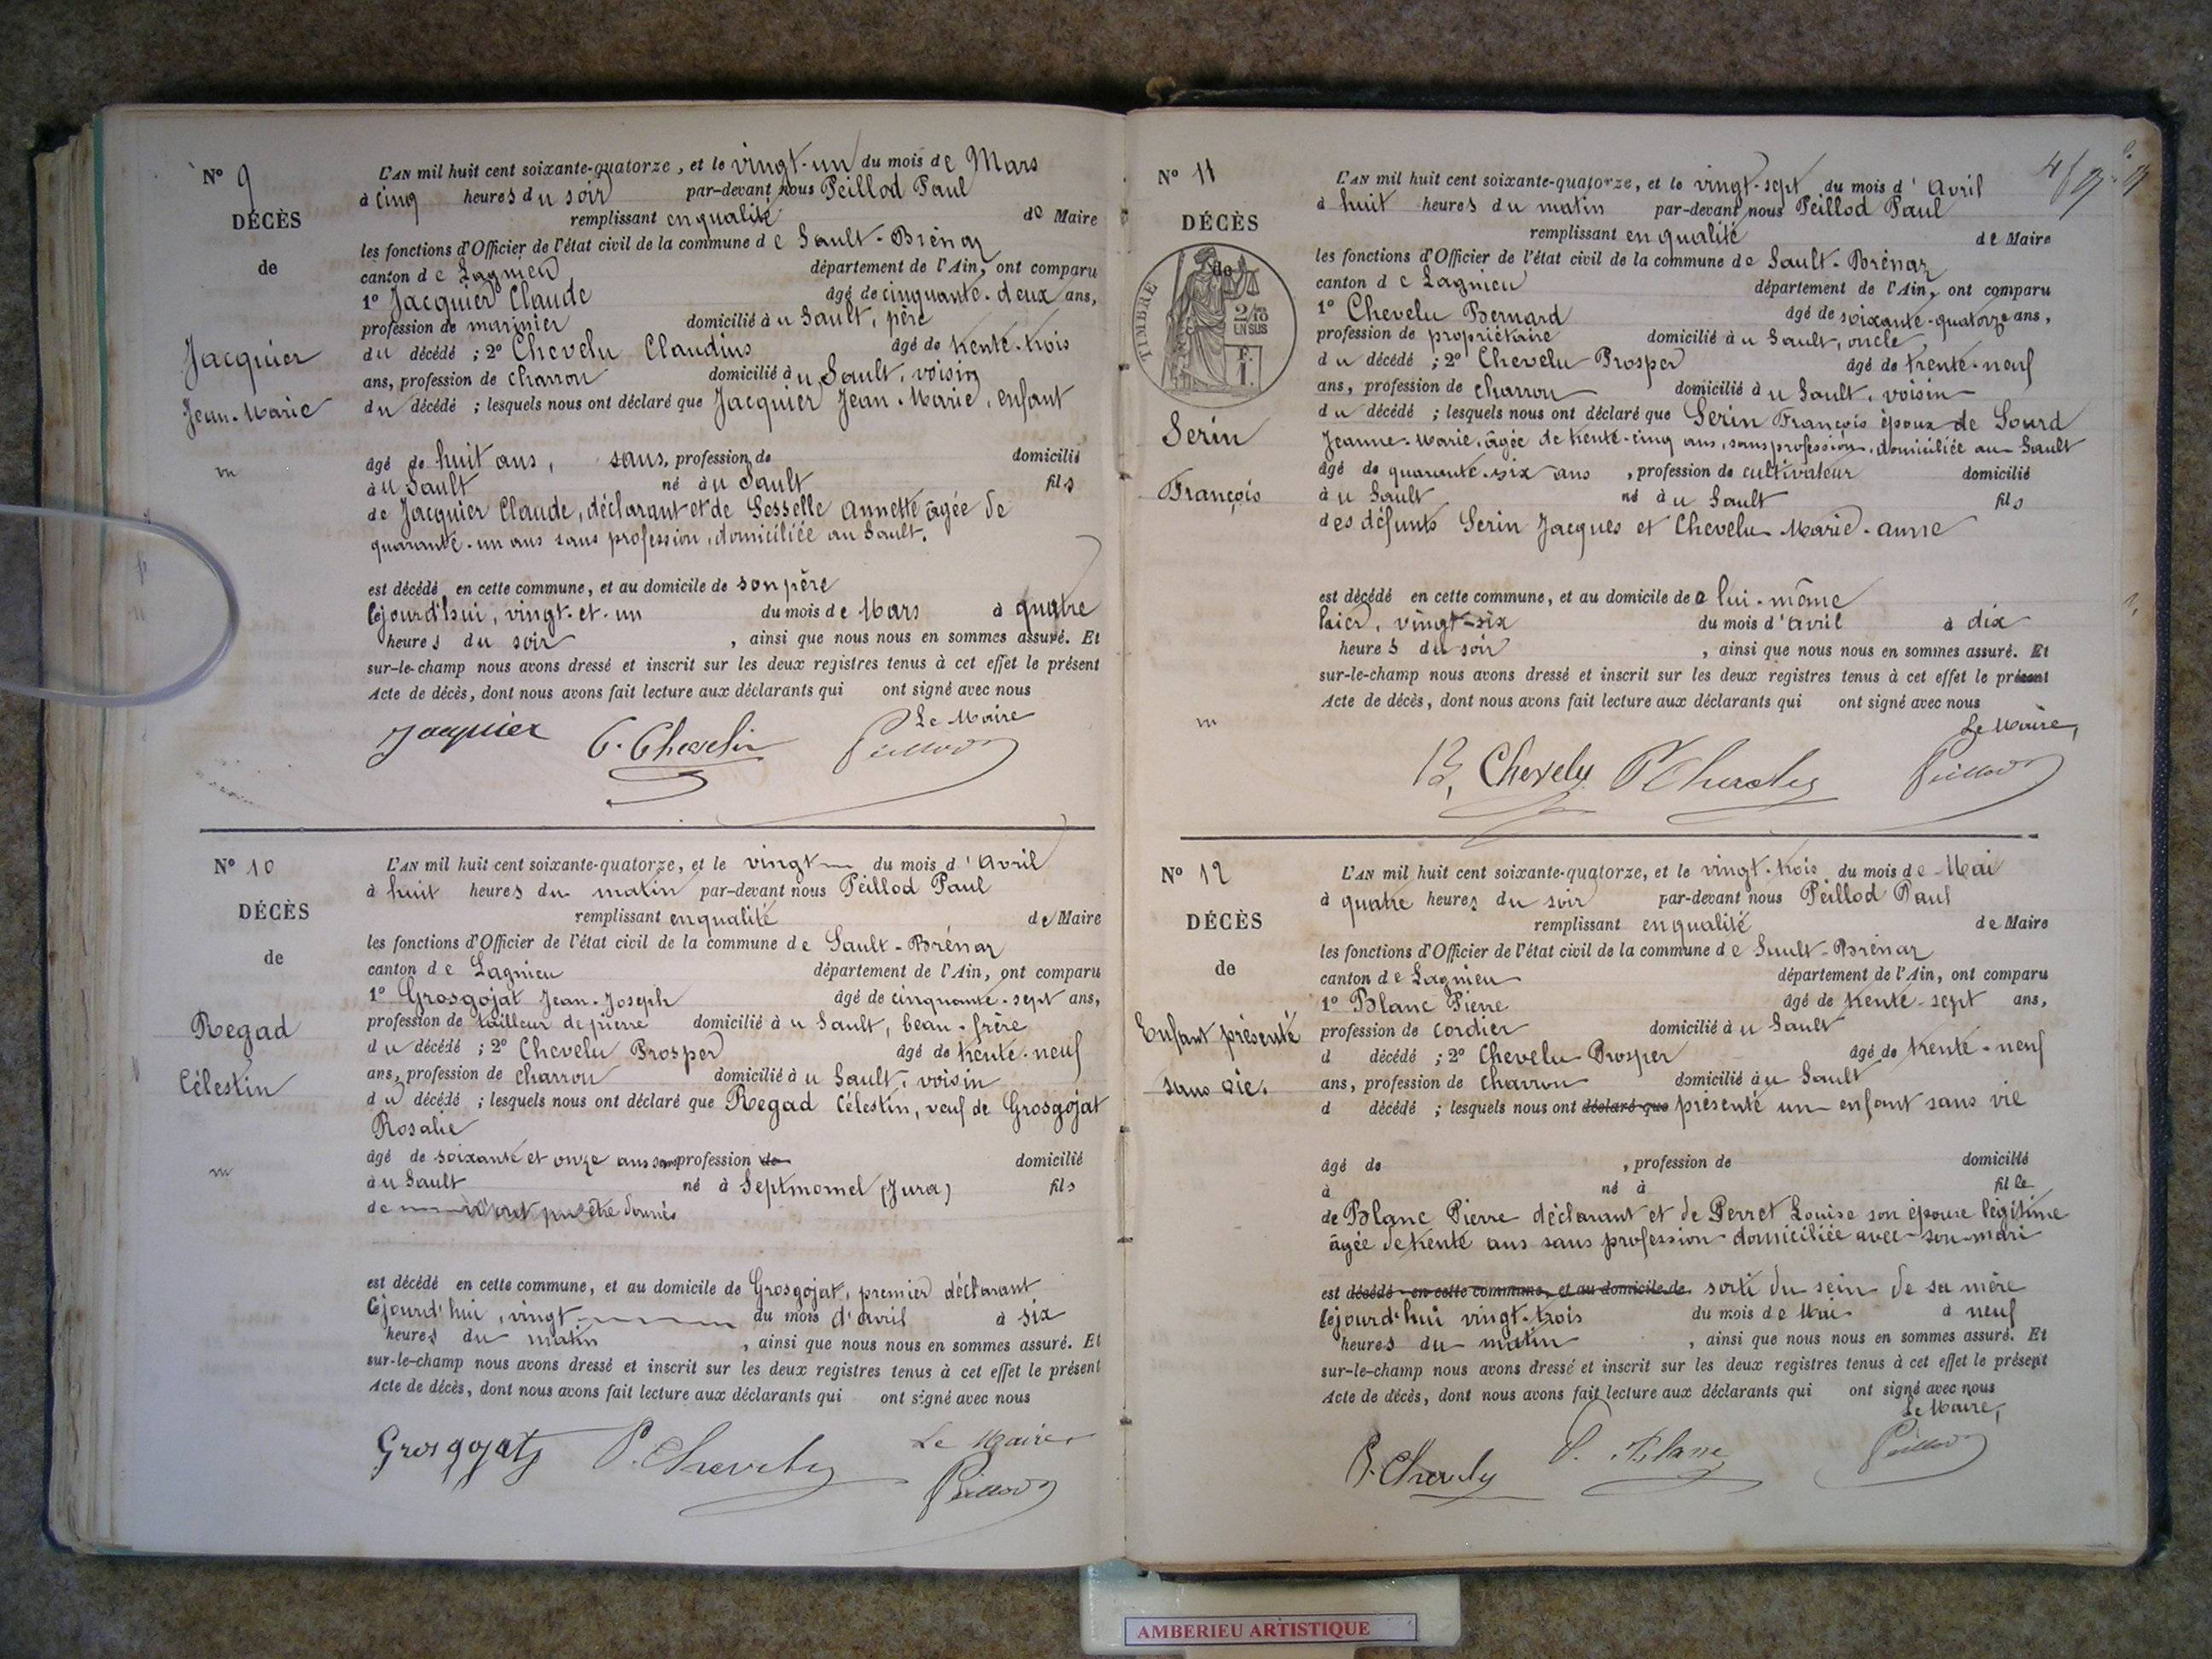 N° 9
DÉCÈS
de
Jacquier
Jean-Marie
m
L'AN mil huit cent soixante-quatorze, et le vingt-un du mois de Mars
à cinq heures du soir par-devant nous Peillod Paul
remplissant en qualité de Maire
les fonctions d'Officier de l'état civil de la commune de Sault-Brénaz
canton de Lagnieu département de l'Ain, ont comparu
1° Jacquier Claude âgé de cinquante-deux ans,
profession de marinier domicilié à u Sault, père
du décédé ; 2° Chevelu Claudius âgé de trente-trois
ans, profession de charron domicilié à u Sault, voisin
du décédé ; lesquels nous ont déclaré que Jacquier Jean-Marie, enfant
âgé de huit ans, sans, profession de domicilié
à u Sault né à u Sault fils
de Jacquier Claude, déclarant et de Sesselle Annette âgée de
quarante-un ans sans profession, domiciliée au Sault.
est décédé en cette commune, et au domicile de son père
Cejourd'hui, vingt-et-un du mois de Mars à quatre
heures du soir , ainsi que nous nous en sommes assuré. Et
sur-le-champ nous avons dressé et inscrit sur les deux registres tenus à cet effet le présent
Acte de décès, dont nous avons fait lecture aux déclarants qui ont signé avec nous
Le Maire
Jacquier C. Chevelu Peillod
N° 10
DÉCÈS
de
Regad
Célestin
m
L'AN mil huit cent soixante-quatorze, et le vingt du mois d'Avril
à huit heures du matin par-devant nous Peillod Paul
remplissant en qualité de Maire
les fonctions d'Officier de l'état civil de la commune de Sault-Brénaz
canton de Lagnieu département de l'Ain, ont comparu
1° Grosgojat Jean-Joseph âgé de cinquante-sept ans,
profession de tailleur de pierre domicilié à u Sault, beau-frère
du décédé ; 2° Chevelu Prosper âgé de trente-neuf
ans, profession de charron domicilié à u Sault, voisin
du décédé ; lesquels nous ont déclaré que Regad Célestin, veuf de Grosgojat
Rosalie
âgé de soixante et onze ans sans profession de domicilié
à u Sault né à Septmomel (Jura) fils
de n'ont pu être donnés
est décédé en cette commune, et au domicile de Grosgojat, premier déclarant
Cejourd'hui, vingt du mois d'avril à six
heures du matin , ainsi que nous nous en sommes assuré. Et
sur-le-champ nous avons dressé et inscrit sur les deux registres tenus à cet effet le présent
Acte de décès, dont nous avons fait lecture aux déclarants qui ont signé avec nous
Le Maire
Grosgojat P. Chevelu Peillod
N° 11
DÉCÈS
de
TIMBRE
2/10
EN SUS
F.
1.
Serin
François
m
L'AN mil huit cent soixante-quatorze, et le vingt-sept du mois d'Avril
à huit heures du matin par-devant nous Peillod Paul
remplissant en qualité de Maire
les fonctions d'Officier de l'état civil de la commune de Sault-Brénaz
canton de Lagnieu département de l'Ain, ont comparu
1° Chevelu Bernard âgé de soixante-quatorze ans,
profession de propriétaire domicilié à u Sault, oncle
du décédé ; 2° Chevelu Prosper âgé de trente-neuf
ans, profession de charron domicilié à u Sault, voisin
du décédé ; lesquels nous ont déclaré que Serin François époux de Sourd
Jeanne-Marie, âgée de trente-cinq ans, sans profession, domiciliée au Sault
âgé de quarante-six ans , profession de cultivateur domicilié
à u Sault né à u Sault fils
des défunts Serin Jacques et Chevelu Marie-Anne
est décédé en cette commune, et au domicile de a lui-même
hier, vingt-six du mois d'avril à dix
heures du soir , ainsi que nous nous en sommes assuré. Et
sur-le-champ nous avons dressé et inscrit sur les deux registres tenus à cet effet le présent
Acte de décès, dont nous avons fait lecture aux déclarants qui ont signé avec nous
Le Maire,
B. Chevelu P. Chevelu Peillod
N° 12
DÉCÈS
de
Enfant présenté
sans vie.
L'AN mil huit cent soixante-quatorze, et le vingt-trois du mois de Mai
à quatre heures du soir par-devant nous Peillod Paul
remplissant en qualité de Maire
les fonctions d'Officier de l'état civil de la commune de Sault-Brénaz
canton de Lagnieu département de l'Ain, ont comparu
1° Blanc Pierre âgé de trente-sept ans,
profession de cordier domicilié à u Sault
d décédé ; 2° Chevelu Prosper âgé de trente-neuf
ans, profession de charron domicilié à u Sault
d décédé ; lesquels nous ont déclaré que présenté un enfant sans vie
âgé de , profession de domicilié
à né à fil le
de Blanc Pierre déclarant et de Perret Louise son épouse légitime
âgée de trente ans sans profession domiciliée avec son mari
est décédé en cette commune, et au domicile de sorti du sein de sa mère
Cejourd'hui vingt-trois du mois de Mai à neuf
heures du matin , ainsi que nous nous en sommes assuré. Et
sur-le-champ nous avons dressé et inscrit sur les deux registres tenus à cet effet le présent
Acte de décès, dont nous avons fait lecture aux déclarants qui ont signé avec nous
Le Maire,
P. Chevelu P. Blanc Peillod
AMBERIEU ARTISTIQUE